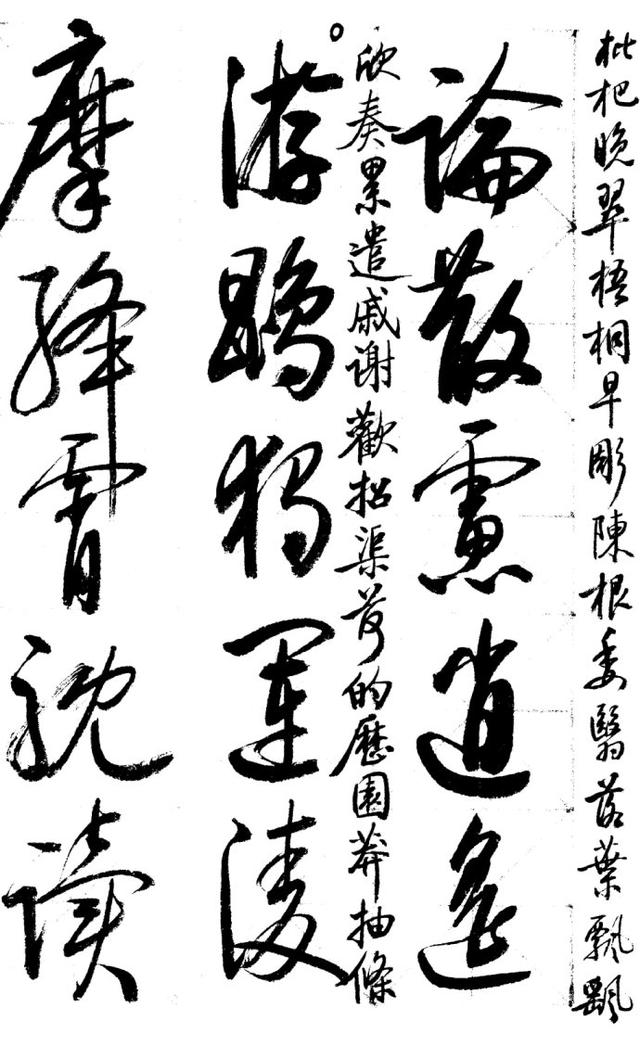 枇杷晚翠梧桐早彫陳根委翳落葉飄颻
論散慮逍遙
欣奏累遣戚謝歡招渠荷的歷園莽抽條
游鵾獨運淩
摩絳霄耽讀